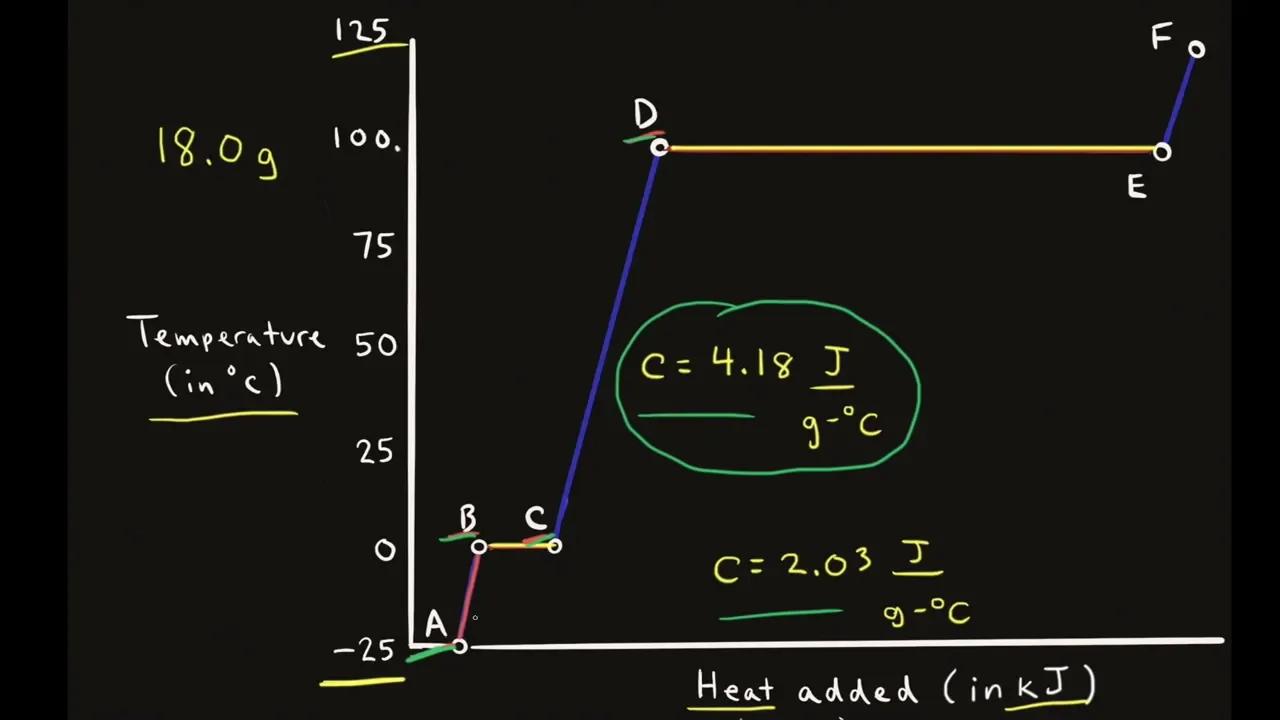 125
18.0 g
100.
75
Temperature
(in °C)
50
25
0
-25
A
B
C
D
E
F
C = 4.18 J
g-°C
C = 2.03 J
g-°C
Heat added (in kJ)